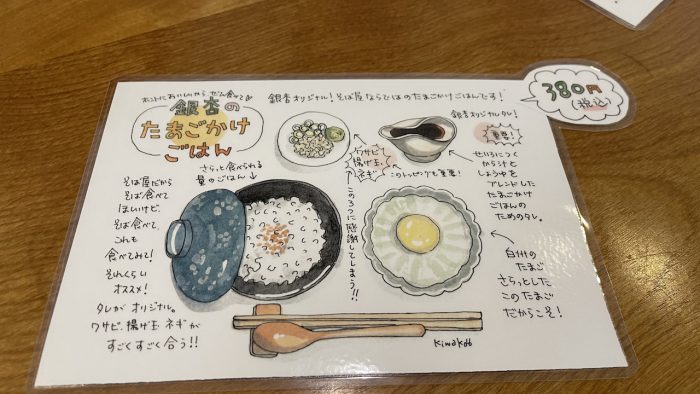 ホントにおいしいから ぜひ食べて
銀杏の
たまごかけ
ごはん
銀杏オリジナル!そば屋ならではのたまごかけごはんです!
380円
(税込)
そば屋だから
そば食べて
ほしいけど、
そば食べて、
これも
食べてみて!
それくらい
オススメ!
タレがオリジナル。
ワサビ、揚げ玉、ネギが
すごくすごく合う!!
さらっと食べられる
量のごはん↓
ワサビ
揚げ玉
ネギ
このトッピングも重要!
この3つに感謝してしまう!!
銀杏オリジナルタレ!
重要!
せいろにつく
からつゆと
しょうゆを
ブレンドした
たまごかけ
ごはんの
ためのタレ。
白州の
たまご
さらっとした
このたまご
だからこそ!